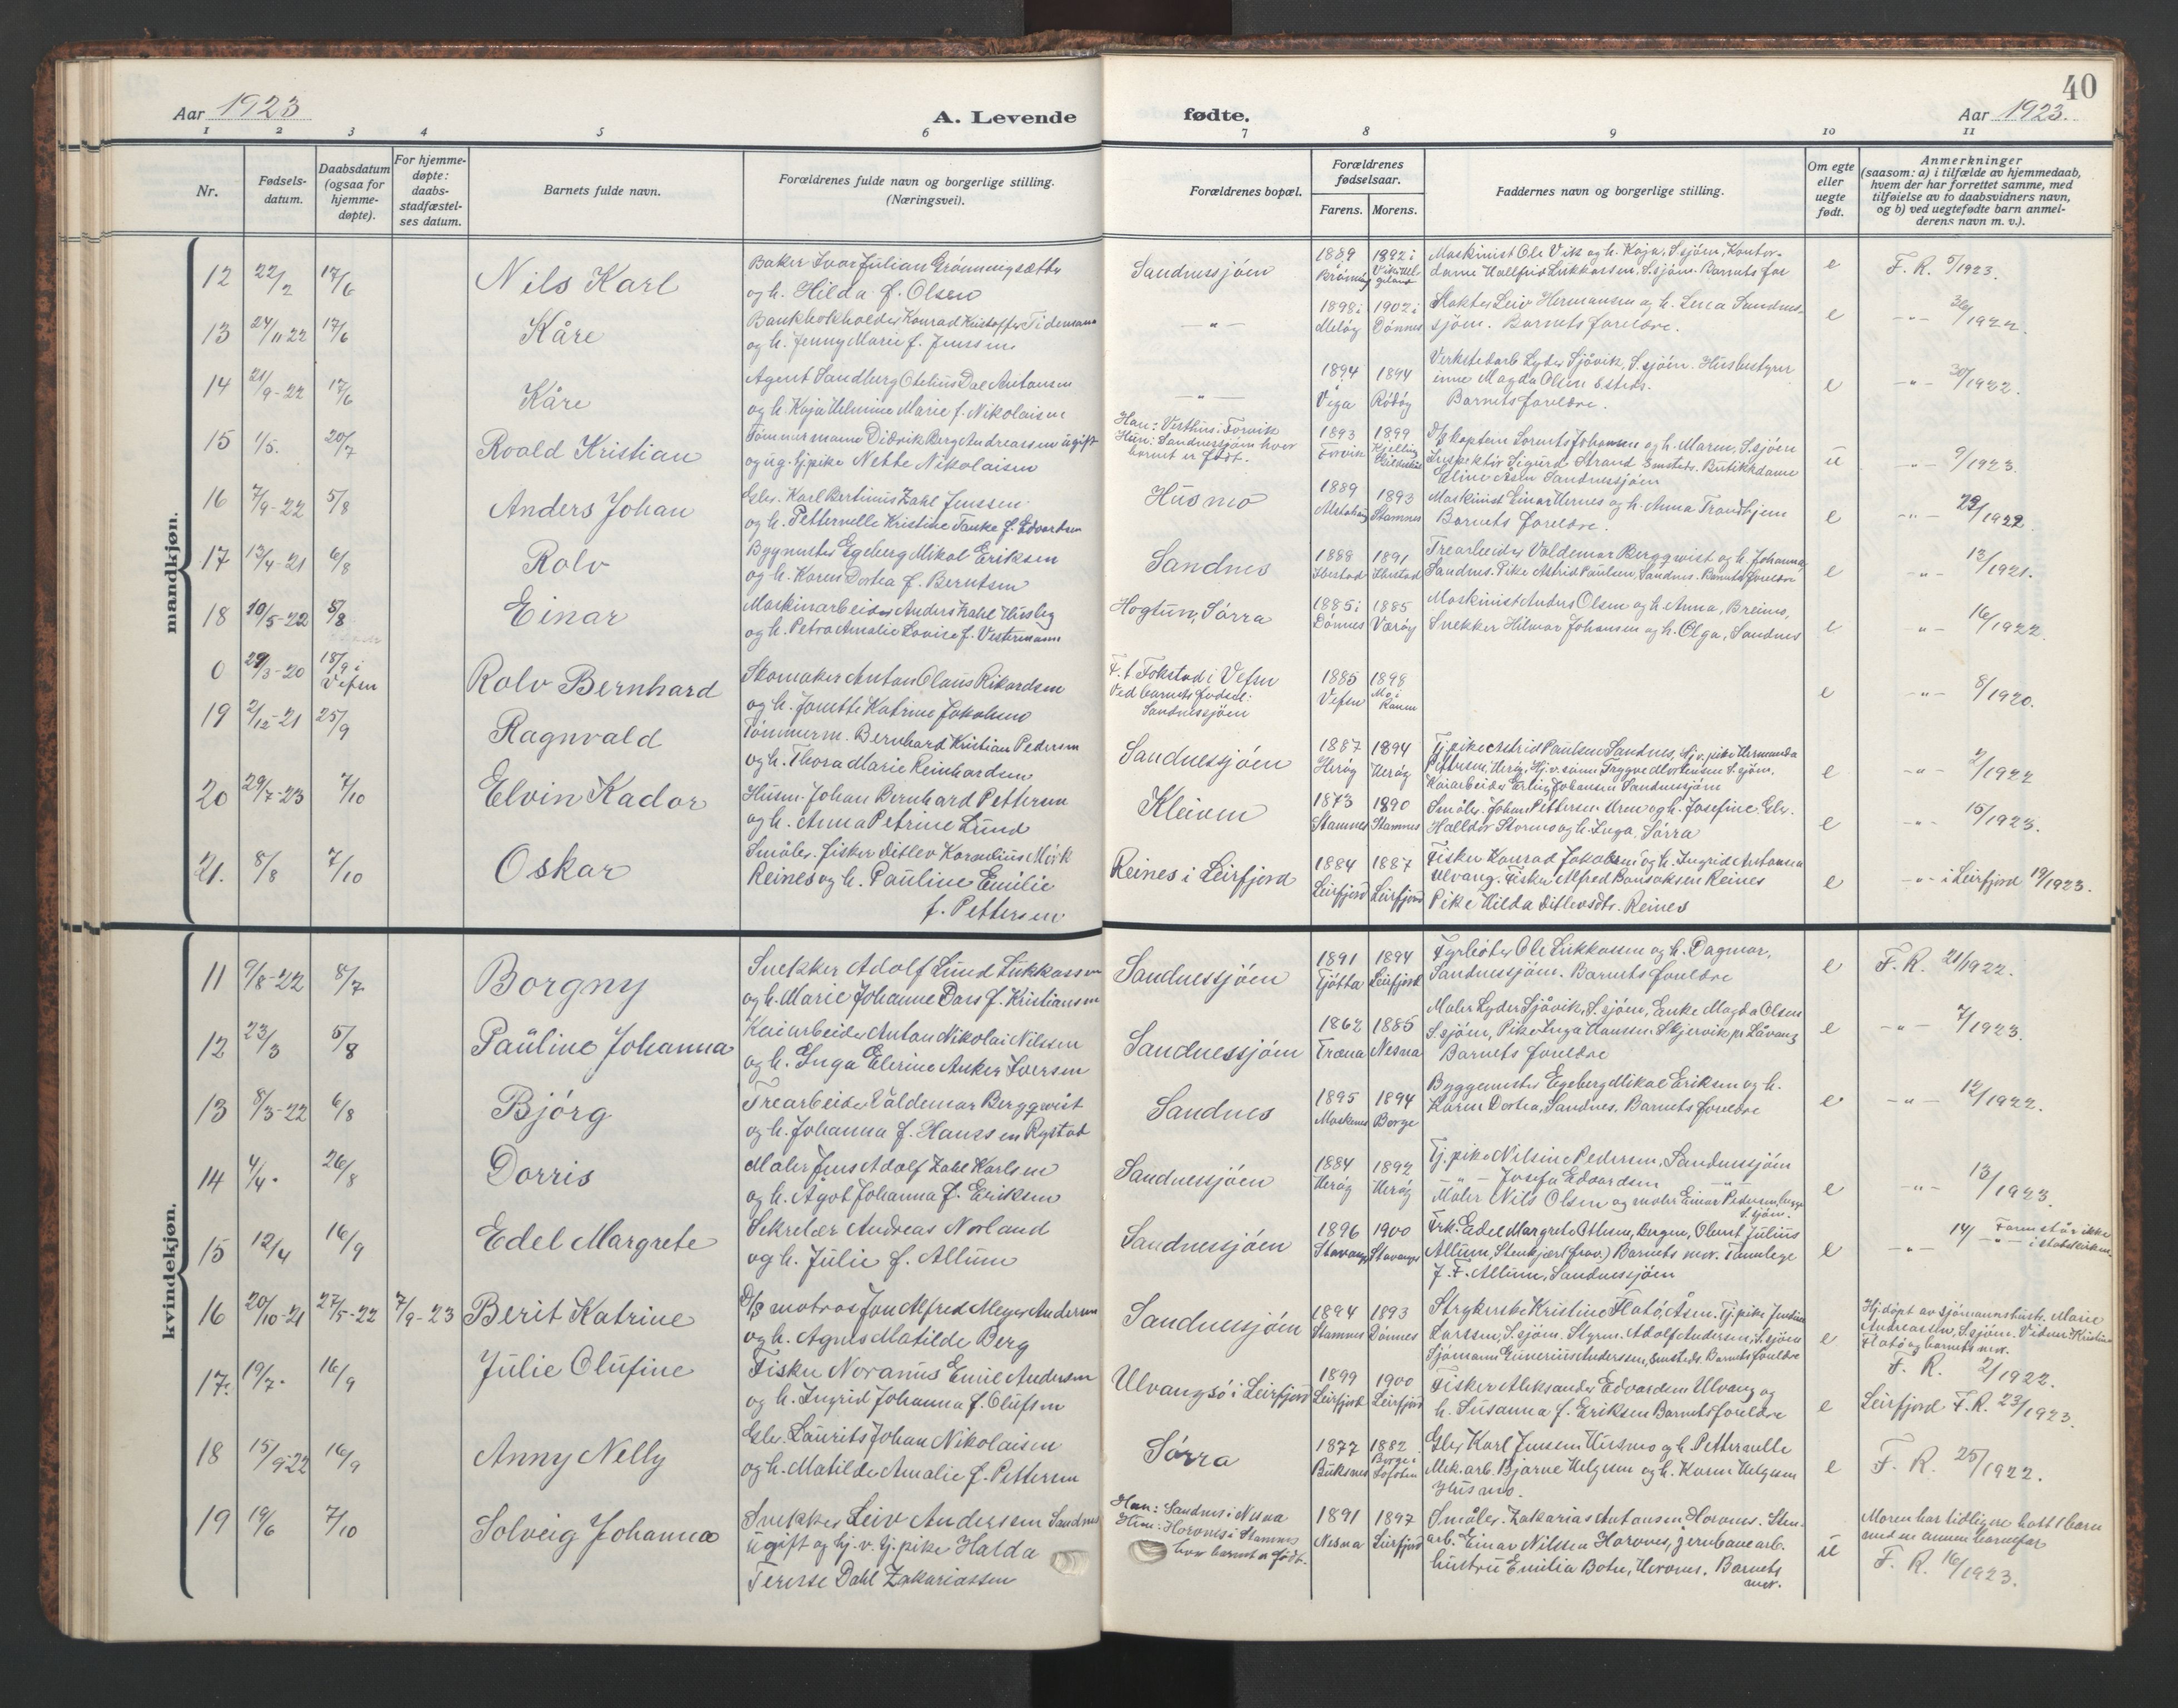 Aar 1923
A. Levende
fødte.
Aar 1923.
40
1 2 3 4 5 6 7 8 9 10 11
Nr.
Fødsels-
datum.
Daabsdatum
(ogsaa for
hjemme-
døpte).
For hjemme-
døpte:
daabs-
stadfæstel-
ses datum.
Barnets fulde navn.
Forældrenes fulde navn og borgerlige stilling.
(Næringsvei).
Forældrenes bopæl.
Forældrenes
fødselsaar.
Farens. Morens.
Faddernes navn og borgerlige stilling.
Om egte
eller
uegte
født.
Anmerkninger
(saasom: a) i tilfælde av hjemmedaab,
hvem der har forrettet samme, med
tilføielse av to daabsvidners navn,
og b) ved uegtefødte barn anmel-
derens navn m. v.).
mandkjøn.
12 22/2 17/6 Nils Karl
Baker Ivar Julian Grönningsæter
og h. Hilda f. Olsen
Sandnessjöen
1889 Brönnöy 1892 i
Maskinist Ole Vik og h. Kaja, S.sjöen, Kontor-
dame Hallfrid Lukkassen, S.sjöen. Barnets for
e F. R. 5/1923.
13 24/11 22 17/6 Kåre
Bankbokholder Konrad Kristoffer Tidemann
og h. Jenny Marie f. Jenssen
-"- 1898 i Melöy 1902 i Dönnes
Slakter Leiv Hermansen og h. Lena Sandnes-
sjöen. Barnets foreldre.
e -"- 36/1922.
14 21/9-22 17/6 Kåre
Agent Sandburg Otelius Dal Antonsen
og h. Kaja Helmine Marie f. Nikolaisen
-"- 1894 Vega 1894 Rödöy
Verkstedarb. Lyder Sjåvik, S.sjöen. Husbestyrer
inne Magda Olsen Esteds.
Barnets foreldre.
e -"- 30/1922.
15 1/5. 20/7 Roald Kristian
Tömmermann Didrik Berg Andreassen ugift
og ug. tj.pike Nette Nikolaisen
Han: Vesthus i Forvik
Hun: Sandnessjöen hvor
barnet er födt.
1893 Forvik 1899
D/S kaptein Lorents Johansen og h. Maren, S.sjöen
Inspektör Sigurd Strand Smsteds. Butikkdame
Eline Åsen Sandnessjöen
u -"- 9/1923.
16 7/9-22 5/8 Anders Johan
Gbr. Karl Bertinus Zahl Jenssen
og h. Petternelle Kristine Tanke f. Edvardsen
Husmo
1889 Alstahaug 1893 Stamnes
Maskinist Einar Hernes og h. Anna Trondhjem
Barnets foreldre.
e -"- 29/1922
17 13/4-21 6/8 Rolv
Bygmester Egeberg Mikal Eriksen
og h. Karen Dortea f. Berntsen
Sandnes
1888 Ibestad 1891 Ibestad
Trearbeider Valdemar Bergqvist og h. Johanna,
Sandnes. Pike Astrid Paulsen, Sandnes. Barnets foreldre
e -"- 13/1921.
18 10/5-22 5/8 Einar
Maskinarbeider Anders Zahl Husby
og h. Petra Amalie Lovise f. Vestermann
Hogtun, Sörra
1885 i Dönnes 1885 Værøy
Maskinist Anders Olsen og h. Anna, Breimo,
Snekker Hilmar Johansen og h. Olga, Sandnes
e -"- 16/1922.
0 29/3-20 18/9 i Vefsn Rolv Bernhard
Skomaker Anton Olaus Rikardsen
og h. Jonette Katrine Jakobsen
F. t. Fokstad i Vefsn
Ved barnets födsel:
Sandnessjöen
1885 Vefsn 1898 Mo i Ranen
e -"- 8/1920.
19 2/12-21 25/9 Ragnvald
Tömmerm. Bernhard Kristian Pedersen
og h. Thora Marie Reinhardsen
Sandnessjöen
1887 Heröy 1894 Heröy
Tj.pike Astrid Paulsen Sandnes, hj.v. pike Hermanda
Pettersen Heröy, hj. v. sönn Trygve Mortensen S.sjöen,
Kaiarbeider Erling Johansen Sandnessjöen
e -"- 2/1922
20 29/7-23 7/10 Elvin Kador
Husm. Johan Bernhard Pettersen
og h. Anna Petrine Lund
Kleiven
1873 Stamnes 1890 Stamnes
Småbr. Johan Pettersen Uren og h. Josefine. Gbr.
Halldor Stormo og h. Inga, Sörra
e -"- 15/1923.
21. 8/8 7/10 Oskar
Småbr. fisker Ditlev Kornelius Mörk
Reines og h. Pauline Emilie
f. Pettersen
Reines i Leirfjord
1884 Leirfjord 1887 Leirfjord
Fisker Konrad Jakobsen og h. Ingrid Antonsen
Ulvang. Fisker Alfred Isaksen Reines
Pike Hilda Ditlevsdtr. Reines
e -"- i Leirfjord 19/1923.
kvindekjøn.
11 9/8-22 8/7 Borgny
Snekker Adolf Lind Lukkassen
og h. Marie Johanne Dars f. Kristiansen
Sandnessjöen
1891 Tjötta 1894 Leirfjord
Fyrböter Ole Lukkassen og h. Dagmar,
Sandnessjöen. Barnets foreldre
e F. R. 21/1922.
12 23/3 5/8 Pauline Johanna
Kaiarbeider Anton Nikolai Nilssen
og h. Inga Elerine Anker Iversen
Sandnessjöen
1862 Træna 1885 Nesna
Maler Lyder Sjåvik, S.sjöen, Enke Magda Olsen
S.sjöen, Pike Inga Hanssen Skjervik pr. Låvong
Barnets foreldre
e -"- 7/1923.
13 8/3-22 6/8 Björg
Trearbeider Valdemar Bergqvist
og h. Johanna f. Hanssen Rystad
Sandnes
1895 Moskenes 1894 Borge
Byggemester Egeberg Mikal Eriksen og h.
Karen Dortea, Sandnes. Barnets foreldre
e -"- 12/1922.
14 4/4. 26/8 Dorris
Maler Jens Adolf Zahl Karlsen
og h. Ågot Johanna f. Eriksen
Sandnessjöen
1884 Heröy 1892 Heröy
Tj.pike Nilsine Pedersen, Sandnessjöen
-"- Josefa Edvardsen -"-
Maler Nils Olsen og maler Einar Pedersen, begge
S.sjöen.
e -"- 13/1923.
15 12/4 16/9 Edel Margrete
Sekretær Andreas Norland
og h. Julie f. Allum
Sandnessjöen
1896 Stavanger 1900 Stavanger
Frk. Edel Margrete Ottesen, Bergen, Oberst Julius
Allum, Stenkjær (frav.) Barnets mor. Tannlege
J. F. Allum, Sandnessjöen
e -"- 14/ Faren står ikke
-"- i statskirken.
16 20/10-21 27/5-22 7/9-23 Berit Katrine
D/S matros Jon Alfred Meyer Andersen
og h. Agnes Matilde Berg
Sandnessjöen
1894 Stamnes 1893 Dönnes
Strykerske Kristine Flatö, Åsen. Tj.pike Justine
Larssen, S.sjöen. Styrm. Adolf Andersen, S.sjöen
Sjömann Einerius Anderssen, Smsteds. Barnets foreldre
e Hj.döpt av sjömannshustr. Marie
Andreassen, S.sjöen. Vidner: Kristine
Flatö og barnets mor.
F. R. 2/1922.
17. 19/7. 16/9 Julie Olufine
Fisker Noranus Emil Andersen
og h. Ingrid Johanna f. Olufsen
Ulvangsö i Leirfjord
1899 Leirfjord 1900 Leirfjord
Fisker Aleksander Edvardsen Ulvang og
h. Susanna f. Eriksen Barnets foreldre
e Leirfjord F. R. 23/1923.
18 15/9-22 16/9 Anny Nelly
Gbr. Laurits Johan Nikolaisen
og h. Matilde Amalie f. Pettersen
Sörra
1877 Buksnes 1882 Borge i Lofoten
Gbr. Karl Jenssen Husmo og h. Petternelle
Mek. arb. Bjarne Helgesen og h. Karen Helgesen
Husmo.
e F. R. 25/1922.
19 19/6 7/10 Solveig Johanna
Snekker Leiv Andersen Sandnes
ugift og hj. v. tj. pike Halda
Terese Dahl Zakariassen
Han: Sandnes i Nesna
Hun: Horvnes i Stamnes
hvor barnet er födt.
1891 Nesna 1897 Leirfjord
Småbr. Zakarias Antonsen Horvnes. Sten-
arb. Einar Nilssen Horvnes, jernbanearb.
hustru Emilia Botn, Horvnes. Barnets
mor.
u Moren har tidligere hatt barn
med en annen barnefar
F. R. 16/1923.